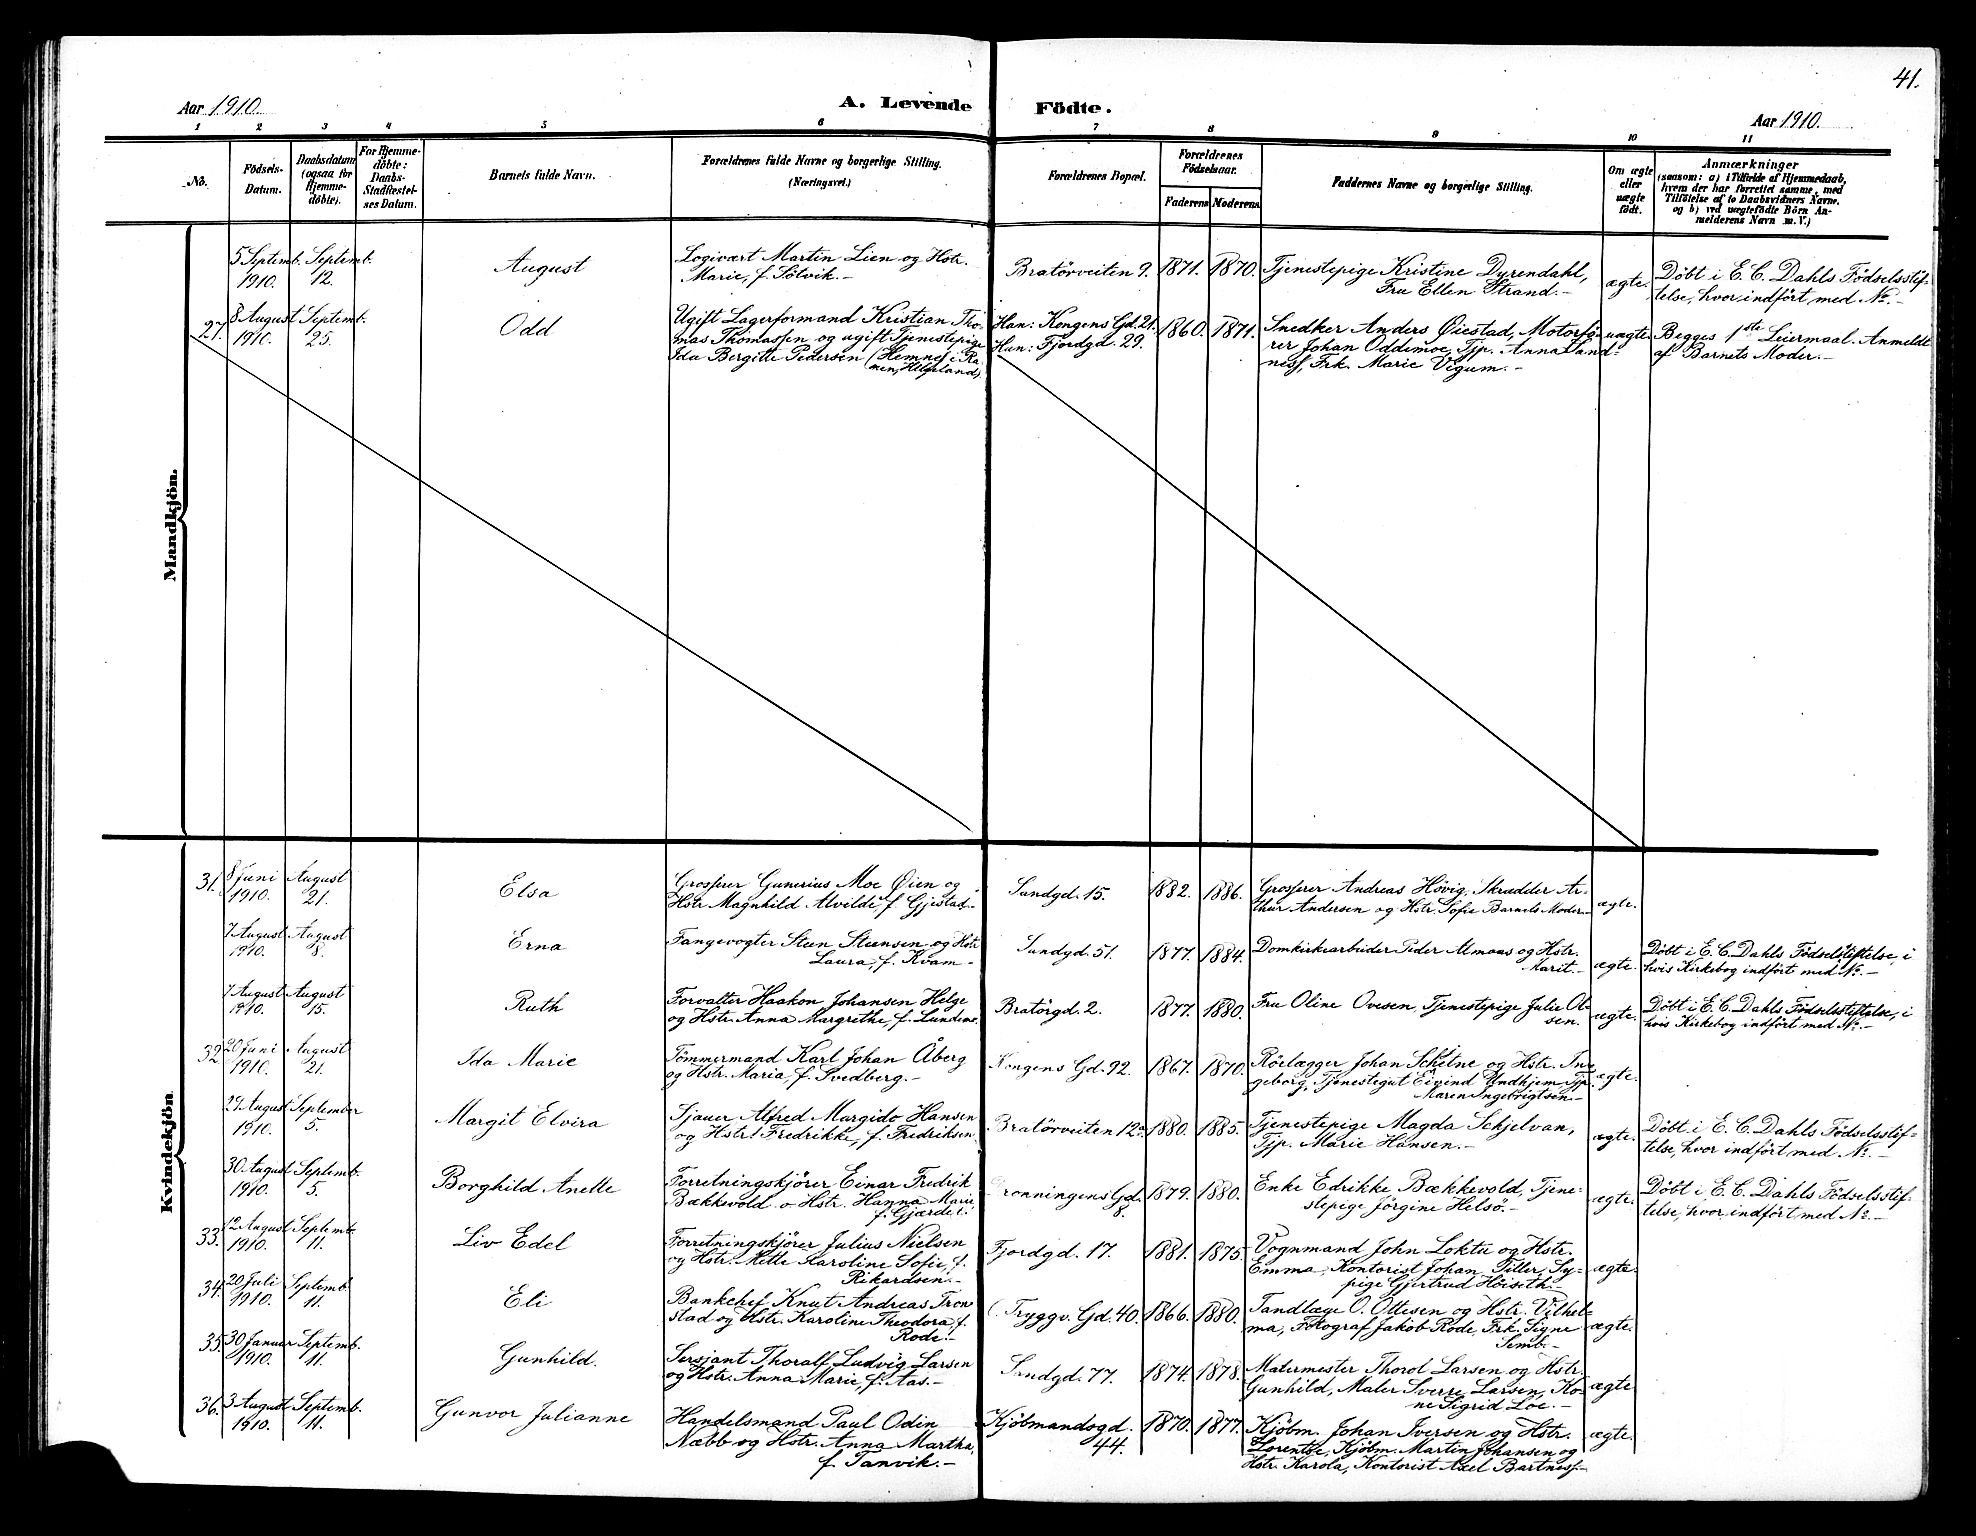 41.
Aar 1910.
A. Levende Födte.
Aar 1910.
1 2 3 4 5 6 7 8 9 10 11
No.
Födsels-
Datum.
Daabsdatum
(ogsaa for
Hjemme-
döbte).
For Hjemme-
döbte:
Daabs-
Stadfæstel-
ses Datum.
Barnets fulde Navn.
Forældrenes fulde Navne og borgerlige Stilling.
(Næringsvei.)
Forældrenes Bopæl.
Forældrenes
Födselsaar.
Faderens Moderens
Faddernes Navne og borgerlige Stilling.
Om ægte
eller
uægte
födt.
Anmærkninger
(saasom: a) i Tilfælde af Hjemmedaab,
hvem der har forrettet samme, med
Tilföielse af to Daabsvidners Navne,
og b) ved uægtefödte Börn An-
melderens Navn m. V.)
Mandkjön.
5 Septemb. 1910.
Septemb. 12.
August
Logivært Martin Lien og Hstr.
Marie, f. Sölvik.-
Bratörveiten 9.
1871.
1870.
Tjenestepige Kristine Dyrendahl,
Fru Ellen Strand.-
ægte.
Döbt i E. C. Dahls Födselsstif-
telse, hvor indfört med No.-
27.
8 August 1910.
Septemb. 25.
Odd
Ugift Lagerformand Kristian Tho-
mas Thomassen og ugift Tjenestepige
Ida Bergitte Pedersen (Hemnes i Ra-
nen, Helgeland)
Han: Kongens Gd. 21.
Hun: Fjordgd. 29.
1860.
1871.
Snedker Anders Øiestad, Motorfö-
rer Johan Oddemoe, Tjp. Anna Sand-
ness, Frk. Marie Vigum.-
uægte.
Begges 1ste Leiermaal. Anmeldt
af Barnets Moder.-
Kvindekjön
31.
8 Juni 1910.
August 21.
Elsa
Grosserer Gunerius Moe Øien og
Hstr. Magnhild Alvilde, f. Gjestad.-
Sandgd. 15.
1882.
1886.
Grosserer Andreas Hövig, Skrædder Ar-
thur Andersen og Hstr. Sofie Barnets Moder.-
ægte.
7 August 1910.
August 8.
Erna
Fangevogter Steen Steensen og Hstr.
Laura, f. Kvam.-
Sandgd. 51.
1877.
1884.
Domkirkearbeider Peder Almaas og Hstr.
Marit.-
ægte.
Döbt i E. C. Dahls Födselsstiftelse, i
hvis Kirkebog indfört med No.-
7 August 1910.
August 15.
Ruth
Forvalter Haakon Johansen Helge
og Hstr. Anna Margrethe, f. Lundemo.
Bratörgd. 2.
1877.
1880.
Fru Oline Ovesen, Tjenestepige Julie Ol-
sen.
ægte.
Döbt i E. C. Dahls Födselsstiftelse, i
hvis Kirkebog indfört med No.-
32.
20 Juni 1910.
August 21.
Ida Marie
Tömmermand Karl Johan Åberg
og Hstr. Maria, f. Svedberg.-
Kongens Gd. 92.
1867.
1870.
Rörlægger Johan Schetne og Hstr. In-
geborg, Tjenestegut Eivind Undhjem, Tjp.
Maren Ingebrigtsen.-
ægte.
29 August 1910.
September 5.
Margit Elvira
Sjauer Alfred Margido Hansen
og Hstr. Fredrikke, f. Fredriksen.
Bratörveiten 12a
1880.
1885.
Tjenestepige Magda Schjelvan,
Tjp. Marie Hansen.-
ægte.
Döbt i E. C. Dahls Födselsstif-
telse, hvor indfört med No.-
30 August 1910.
Septemb. 5.
Borghild Anette
Forretningskjörer Einar Fredrik
Bækkevold o Hstr. Hanna Marie
f. Gjærde.
Dronningens Gd.
8.
1879.
1880.
Enke Edrikke Bækkevold, Tjene-
stepige Jörgine Helsö.-
ægte.
Döbt i E. C. Dahls Födselsstif-
telse, hvor indfört med No.-
33.
12 August 1910.
Septemb. 11.
Liv Edel
Forretningskjörer Julius Nielsen
og Hstr. Mette Karoline Sofie, f.
Rikardsen.-
Fjordgd. 17.
1881.
1875.
Vognmand John Loktu og Hstr.
Emma, Kontorist Johan Tiller, Sy-
pige Gjertrud Höiseth.-
ægte.
34.
20 Juli 1910.
Septemb. 11.
Eli
Bankchef Knut Andreas Tron-
stad og Hstr. Karoline Theodora, f.
Rode.-
O. Tryggv. Gd. 40.
1866.
1880.
Tandlæge O. Ottesen og Hstr. Vilhel-
ma, Fotograf Jakob Rode, Frk. Signe
Semb.-
ægte.
35.
30 Januar 1910.
Septemb. 11.
Gunhild.
Sersjant Thoralf Ludvig Larsen
og Hstr. Anna Marie, f. Aas.-
Sandgd. 77.
1874.
1878.
Malermester Thorol Larsen og Hstr.
Gunhild, Maler Sverre Larsen, Ko-
ne Sigrid Loe.-
ægte
36.
3 August 1910.
Septemb. 11.
Gunvor Julianne
Handelsmand Paul Odin
Næbb og Hstr. Anna Martha,
f. Tanvik.-
Kjöbmandsgd.
44.
1870.
1877.
Kjöbm. Johan Iversen og Hstr.
Lorentse, Kjöbm. Martin Johansen og
Hstr. Karola, Kontorist Axel Bartness.-
ægte.